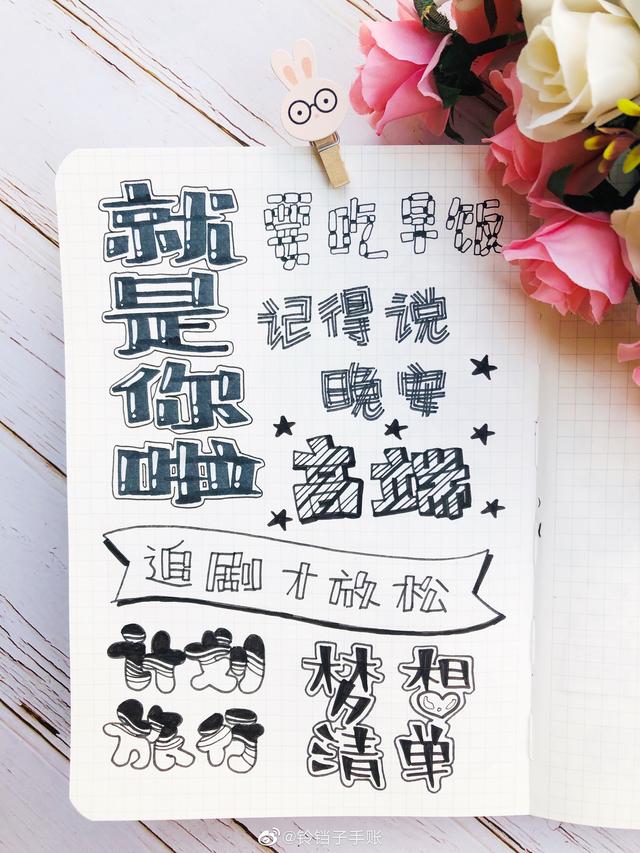 就是你啦
要吃早饭
记得说
晚安
高端
追剧才放松
计划
旅行
梦想
清单
@铃铛子手账